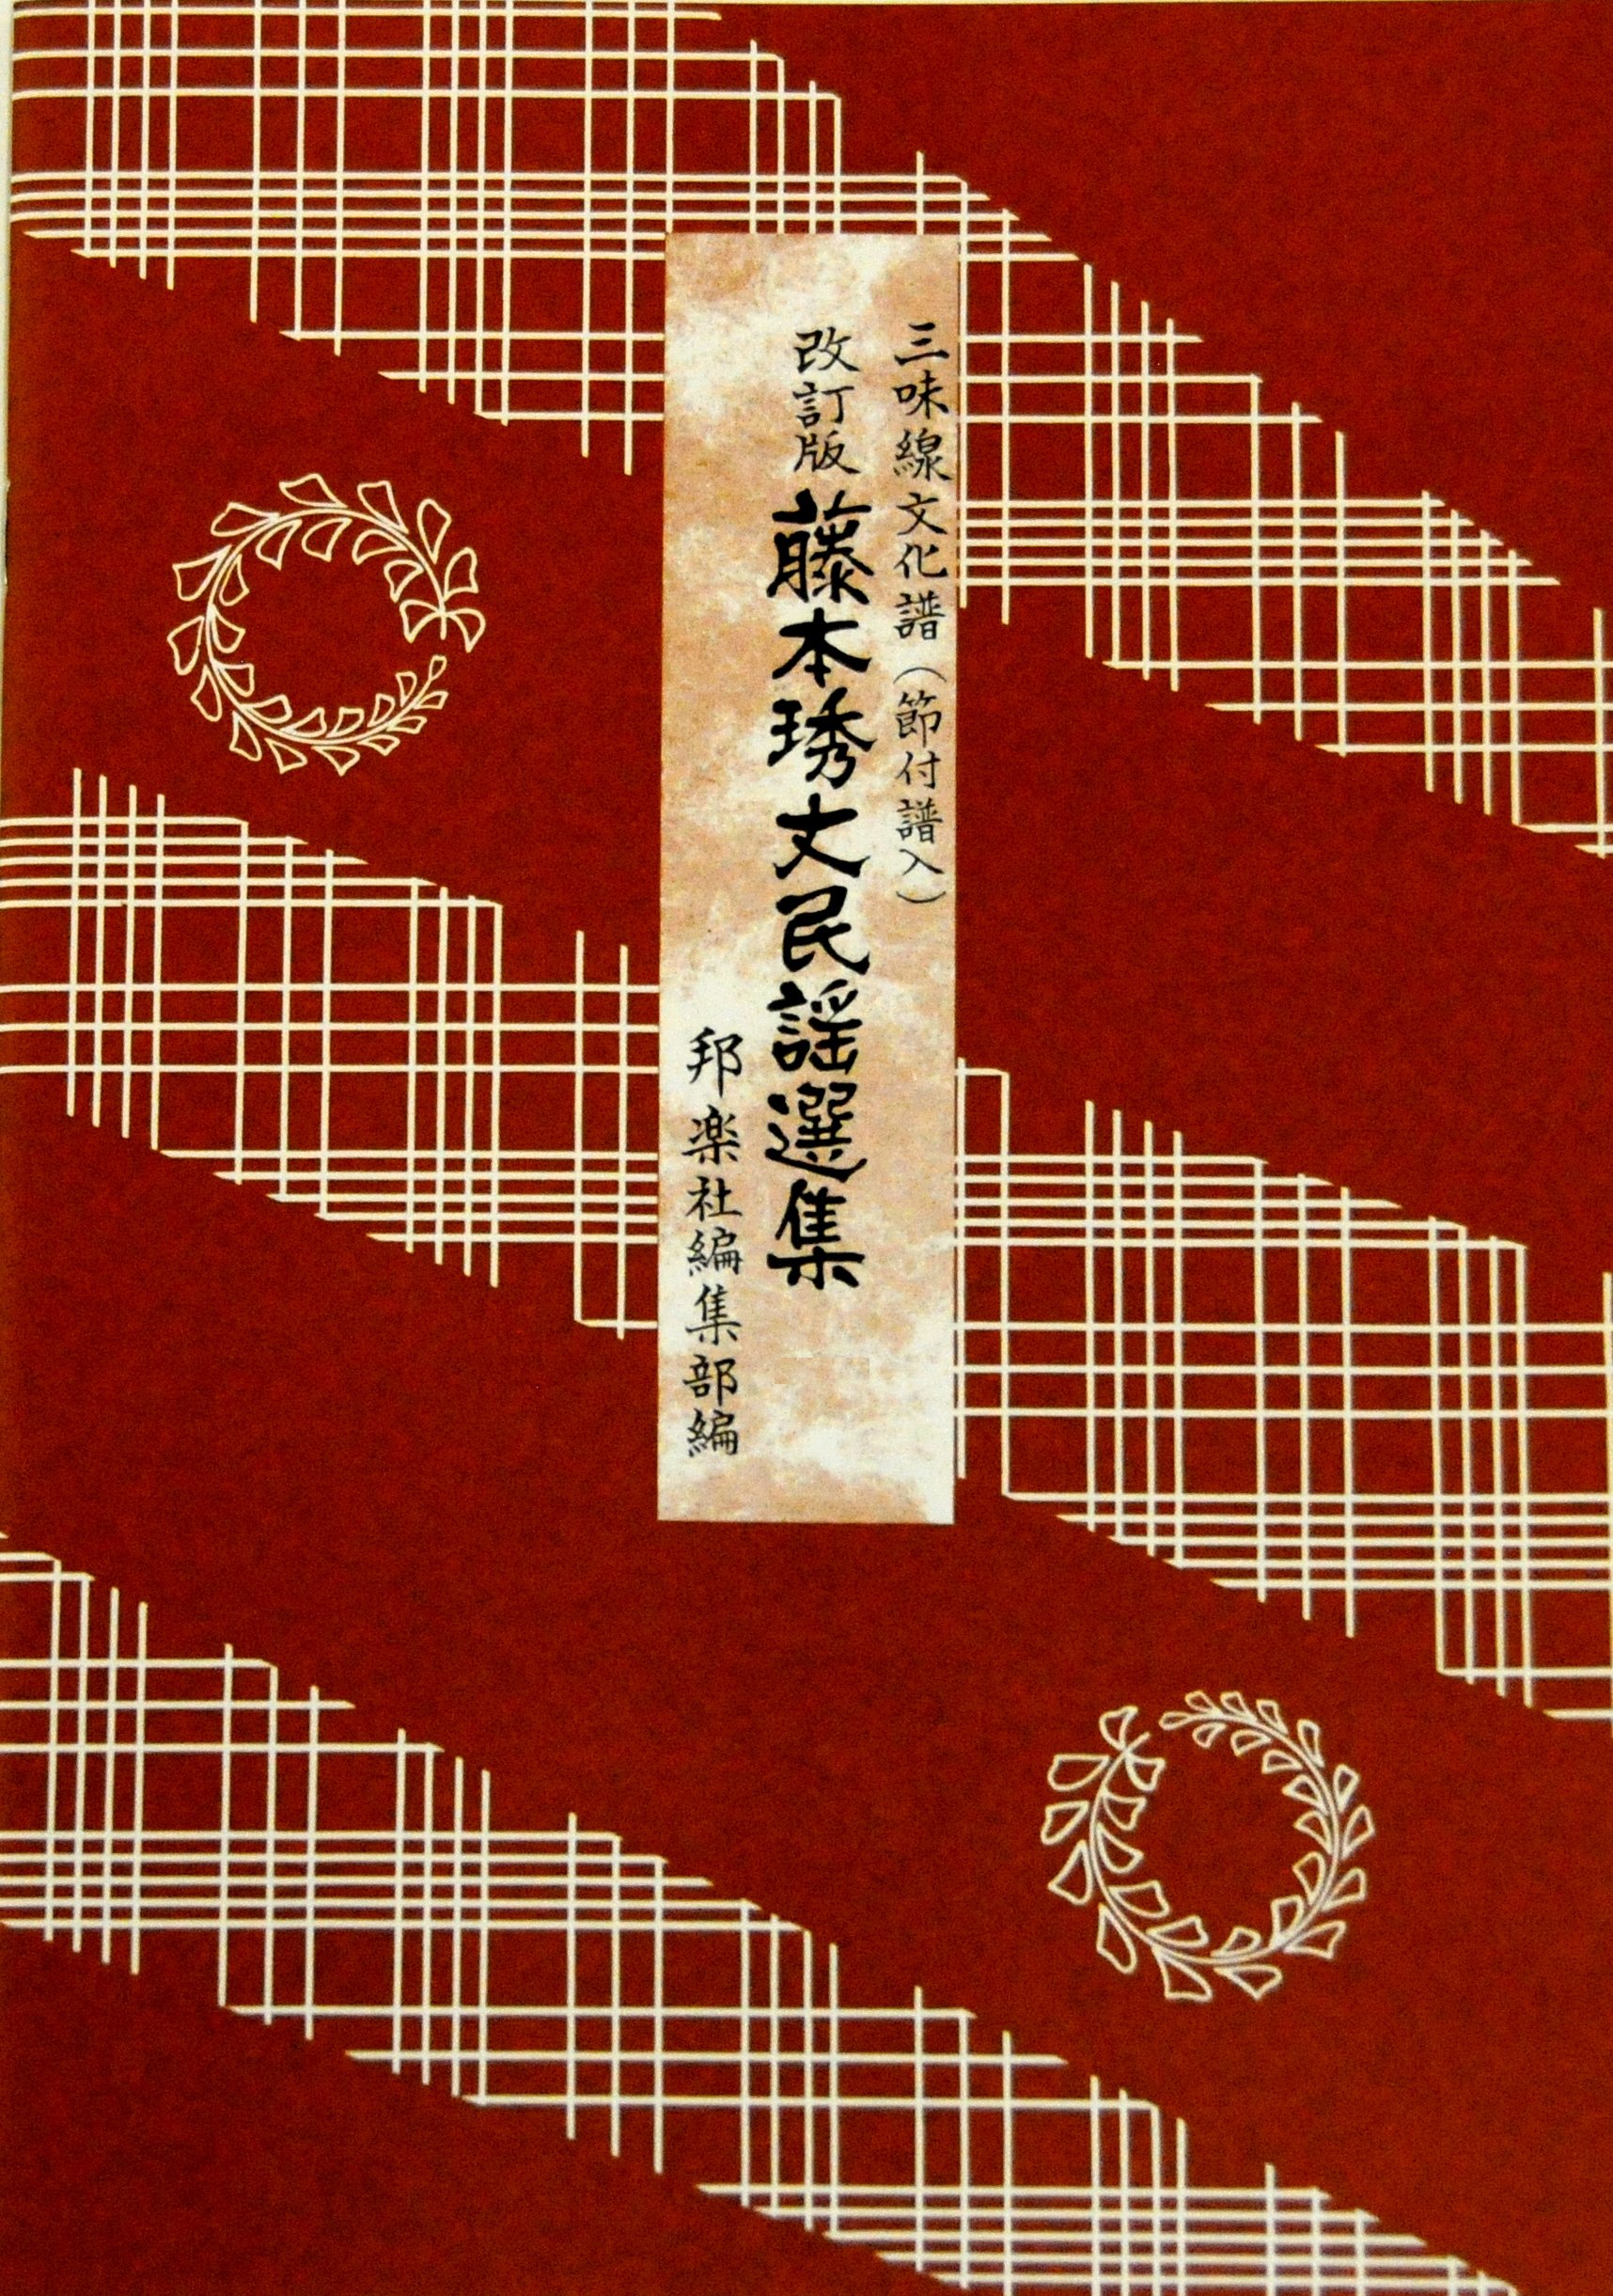 三味線文化譜（節付譜入）
改訂版 藤本琇丈民謡選集
邦楽社編集部編